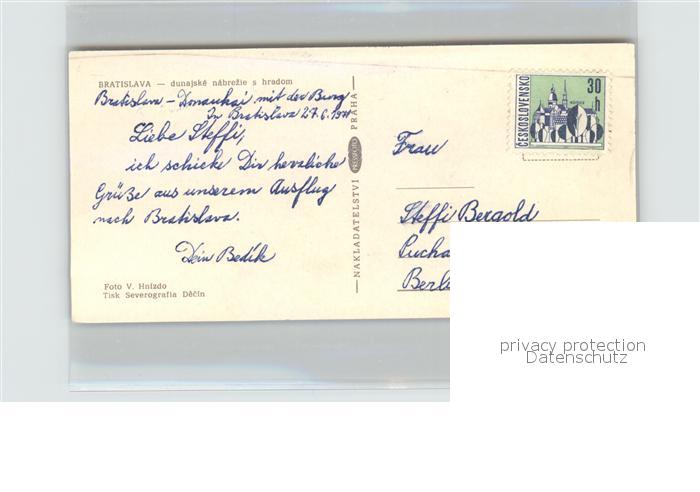 BRATISLAVA — dunajské nábrežie s hradom
Bratislava - Donaukai mit der Burg
In Bratislava 27.6.1971
Liebe Steffi,
ich schicke Dir herzliche
Grüße aus unserem Ausflug
nach Bratislava.
Dein Bedík
Foto V. Hnízdo
Tisk Severografia Děčín
NAKLADATELSTVÍ PRESSFOTO PRAHA
ČESKOSLOVENSKO
30 h
Frau
Steffi Bergold
Pucha
Berli
privacy protection
Datenschutz